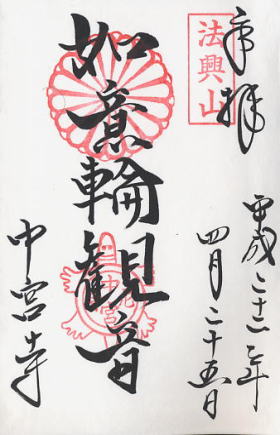 奉拝
法興山
平成二十二年
四月二十五日
如意輪觀音
中宮寺